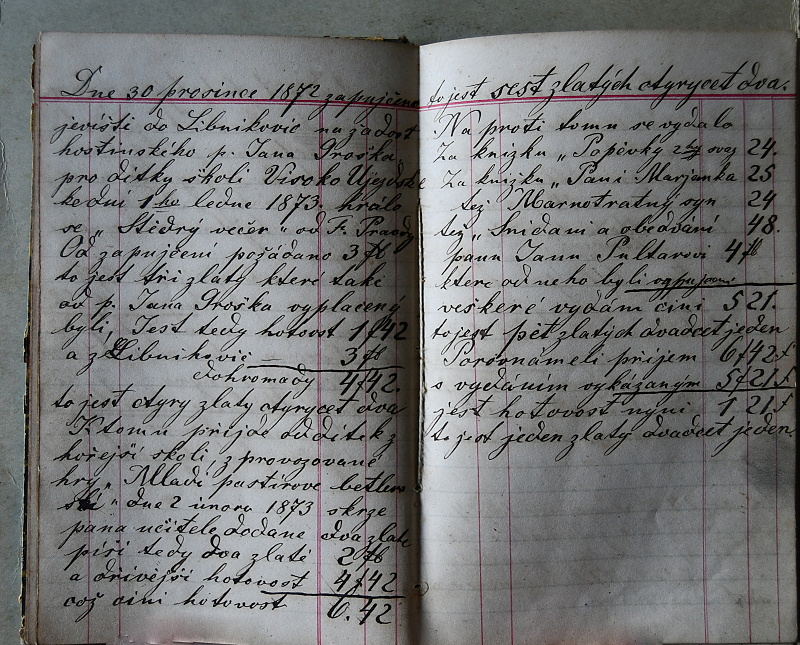 Dne 30 prosince 1872 zapujčeno
jeviští do Libnikovic na žadost
hostinského p. Jana Proška
pro ditky školi Visoko Ujezdske
kedni 1ho ledne 1873. hrálo
se „Štědrý večer" od F. Pravdy
Od zapujčení požádano 3 f
to jest tři zlaty které také
od p. Jana Proška vyplaceny
byli, Jest tedy hotovost 1 f 42
a z Libnikovic — 3 f
dohromady 4 f 42.
to jest čtyry zlaty čtyrycet dva
K tomu přijde od ditek z
hořejší školi, z provozované
hry „Mladí pastirove betlem
ští" dne 2 února 1873 skrze
pana učitele dodane dva zlate
piši tedy dva zlaté 2 f
a dřivější hotovost 4 f 42
což činí hotovost 6.42
to jest šest zlatých čtyrycet dva.
Na proti tomu se vydalo
Za knižku „Popěvky 2hý svaz 24.
Za knižku „Paní Marjanka 25
též Marnotratny syn 24
též „Snidani a obědvání 48.
panu Janu Pultarovi 4 f
ktere od neho byli
veškeré vydám činí 5 21.
to jest pět zlatých dvadcet jeden
Porovnámeli přijem 6 f 42
s vydáním vykázaným 5 f 21
jest hotovost nyní 1 21
to jest jeden zlatý dvadcet jeden.